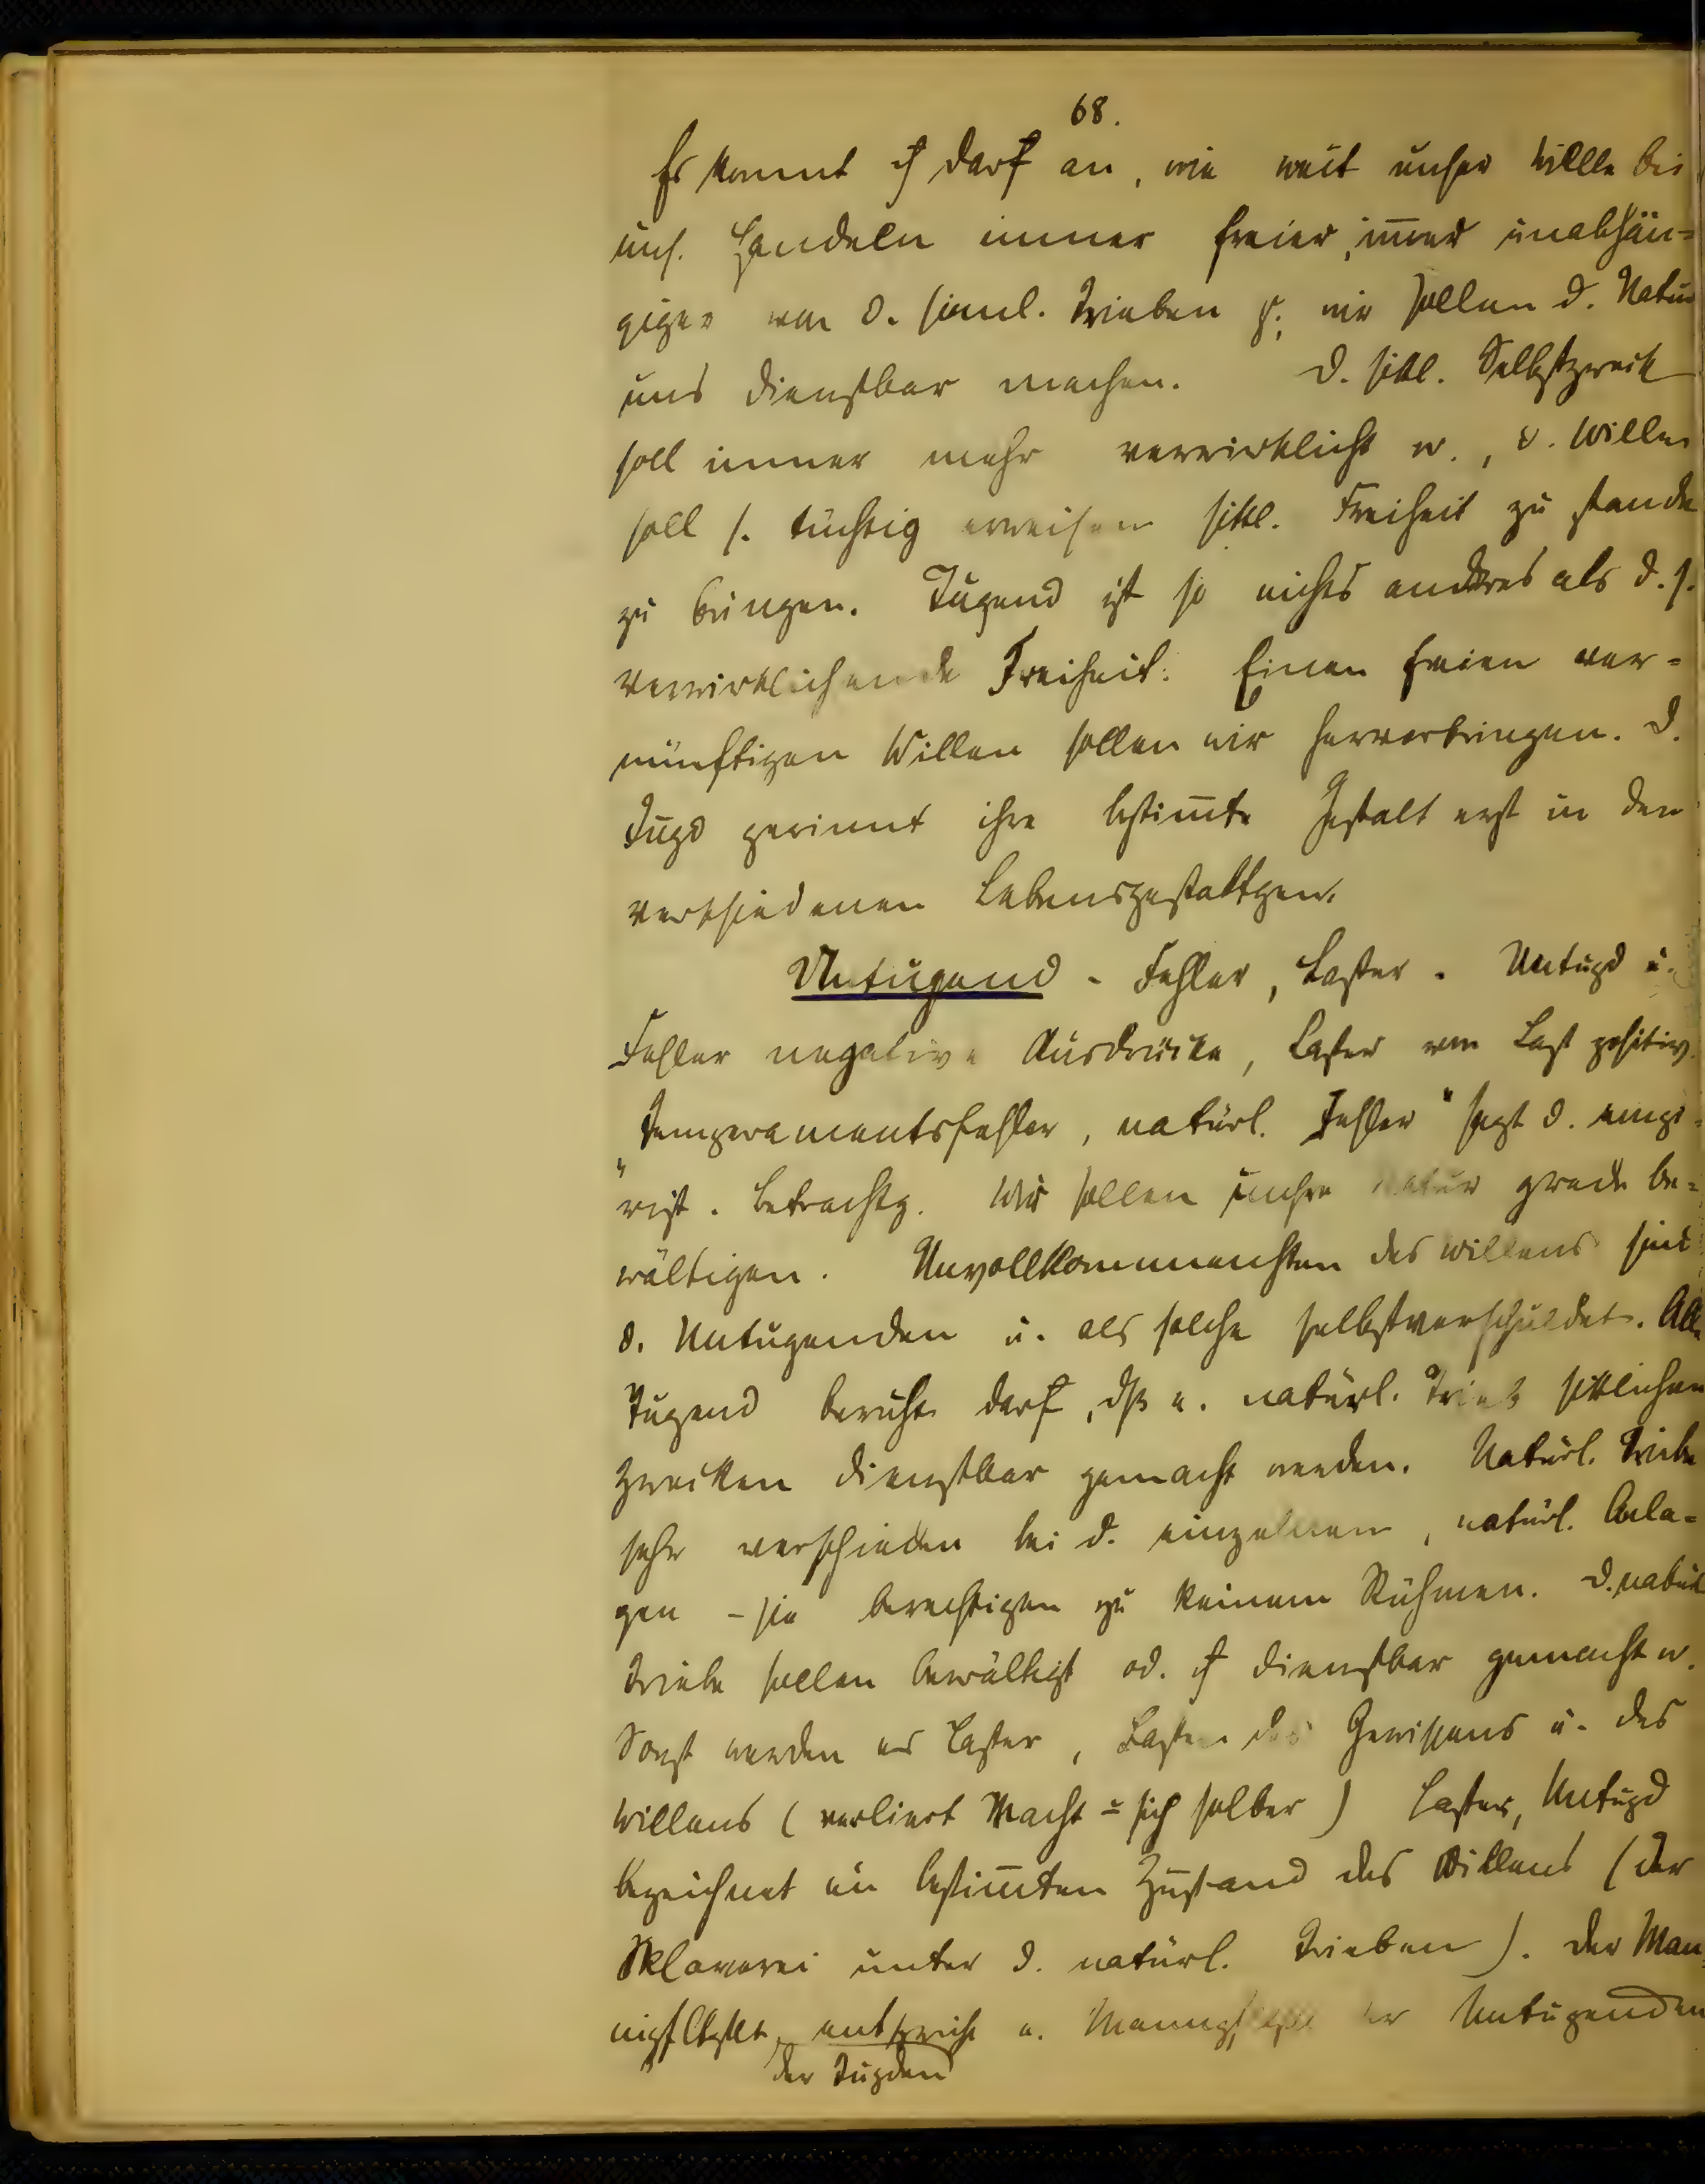 68.
Es kommt darauf an, wie weit unser Wille bei
uns. Handeln immer freier, im̅er unabhän-
giger von d. sinnl. Trieben s., wir sollen d. Natur
uns dienstbar machen. D. sittl. Selbstzweck
soll immer mehr verwirklicht w., d. Wille
soll s. tüchtig erweisen sittl. Freiheit zu stande
zu bringen. Tugend ist so nichts anderes als d. s.
verwirklichende Freiheit. Einen freien ver-
nünftigen Willen sollen wir hervorbringen. D.
Tugd gewinnt ihre bestim̅te Gestalt erst in den
verschiedenen Lebensgestaltgen.
Untugend - Fehler, Laster. Untugd u.
Fehler negative Ausdrücke, Laster von Last positiv.
„Temperamentsfehler, natürl. Fehler" sagt d. empi-
rist. Betrachtg. Wir sollen unsre Natur grade be-
wältigen. Unvollkommenhten des Willens sind
d. Untugenden u. als solche selbstverschuldet. Alle
Tugend beruht darf, dß u. natürl. Trieb sittlichen
Zwecken dienstbar gemacht werden. Natürl. Triebe
sehr verschieden bei d. einzelnen, natürl. Anla-
gen - sie berechtigen zu keinem Rühmen. D. natürl
Triebe sollen bewältigt od. dienstbar gemacht w.
Sonst werden es Laster, Lasten des Gewissens u. des
Willens (verliert Macht ü sich selber) Laster, Untugd
bezeichnet ein bestim̅ten Zustand des Willens (der
Sklaverei unter d. natürl. Trieben). Der Man-
nigfltgkt entspricht e. Manngf der Untugenden
der Tugden